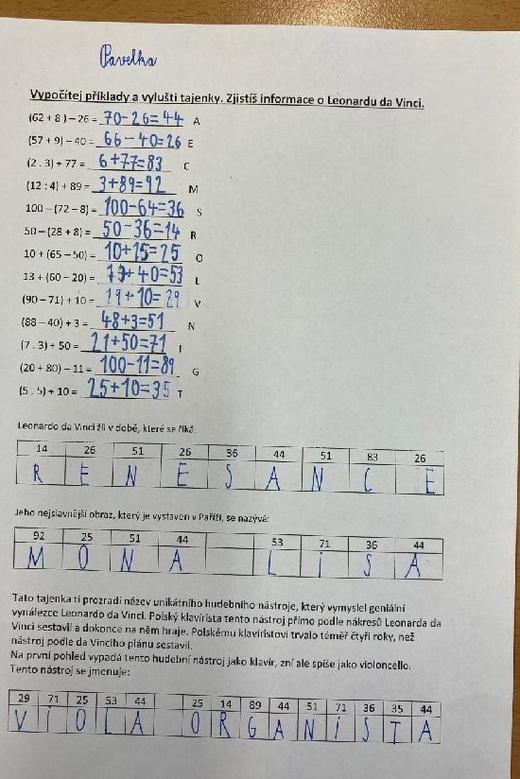 Pavelka
Vypočítej příklady a vylušti tajenky. Zjistíš informace o Leonardu da Vinci.
(62 + 8 ) – 26 = 70-26=44 A
(57 + 9) – 40 = 66-40=26 E
(2 . 3) + 77 = 6+77=83 C
(12 : 4) + 89 = 3+89=92 M
100 – (72 – 8) = 100-64=36 S
50 – (28 + 8) = 50-36=14 R
10 + (65 – 50) = 10+15=25 O
13 + (60 – 20) = 13+40=53 L
(90 – 71) + 10 = 19+10=29 V
(88 – 40) + 3 = 48+3=51 N
(7 . 3) + 50 = 21+50=71 I
(20 + 80) – 11 = 100-11=89 G
(5 . 5) + 10 = 25+10=35 T
Leonardo da Vinci žil v době, které se říká:
14 26 51 26 36 44 51 83 26
R E N E S A N C E
Jeho nejslavnější obraz, který je vystaven v Paříži, se nazývá:
92 25 51 44 53 71 36 44
M O N A L I S A
Tato tajenka ti prozradí název unikátního hudebního nástroje, který vymyslel geniální
vynálezce Leonardo da Vinci. Polský klavírista tento nástroj přímo podle nákresů Leonarda da
Vinci sestavil a dokonce na něm hraje. Polskému klavíristovi trvalo téměř čtyři roky, než
nástroj podle da Vinciho plánu sestavil.
Na první pohled vypadá tento hudební nástroj jako klavír, zní ale spíše jako violoncello.
Tento nástroj se jmenuje:
29 71 25 53 44 25 14 89 44 51 71 36 35 44
V I O L A O R G A N I S T A